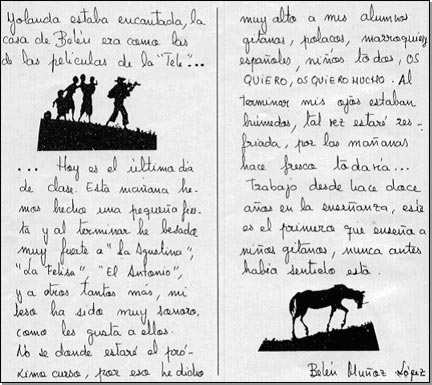 Yolanda estaba encantada, la
casa de Belén era como las
de las películas de la "Tele"...
... Hoy es el último día
de clase. Esta mañana he-
mos hecho una pequeña fies-
ta y al terminar he besado
muy fuerte a "La Agustina",
"La Felisa", "El Antonio",
y a otros tantos más, mi
beso ha sido muy sonoro,
como les gusta a ellos.
No se donde estaré el pró-
ximo curso, por eso he dicho
muy alto a mis alumnos
gitanos, polacos, marroquíes,
españoles, niños todos, OS
QUIERO, OS QUIERO MUCHO. Al
terminar mis ojos estaban
húmedos, tal vez estaré res-
friada, por las mañanas
hace fresco todavía...
Trabajo desde hace doce
años en la enseñanza, este
es el primero que enseño a
niños gitanos, nunca antes
había sentido esta.
Belén Muñoz López